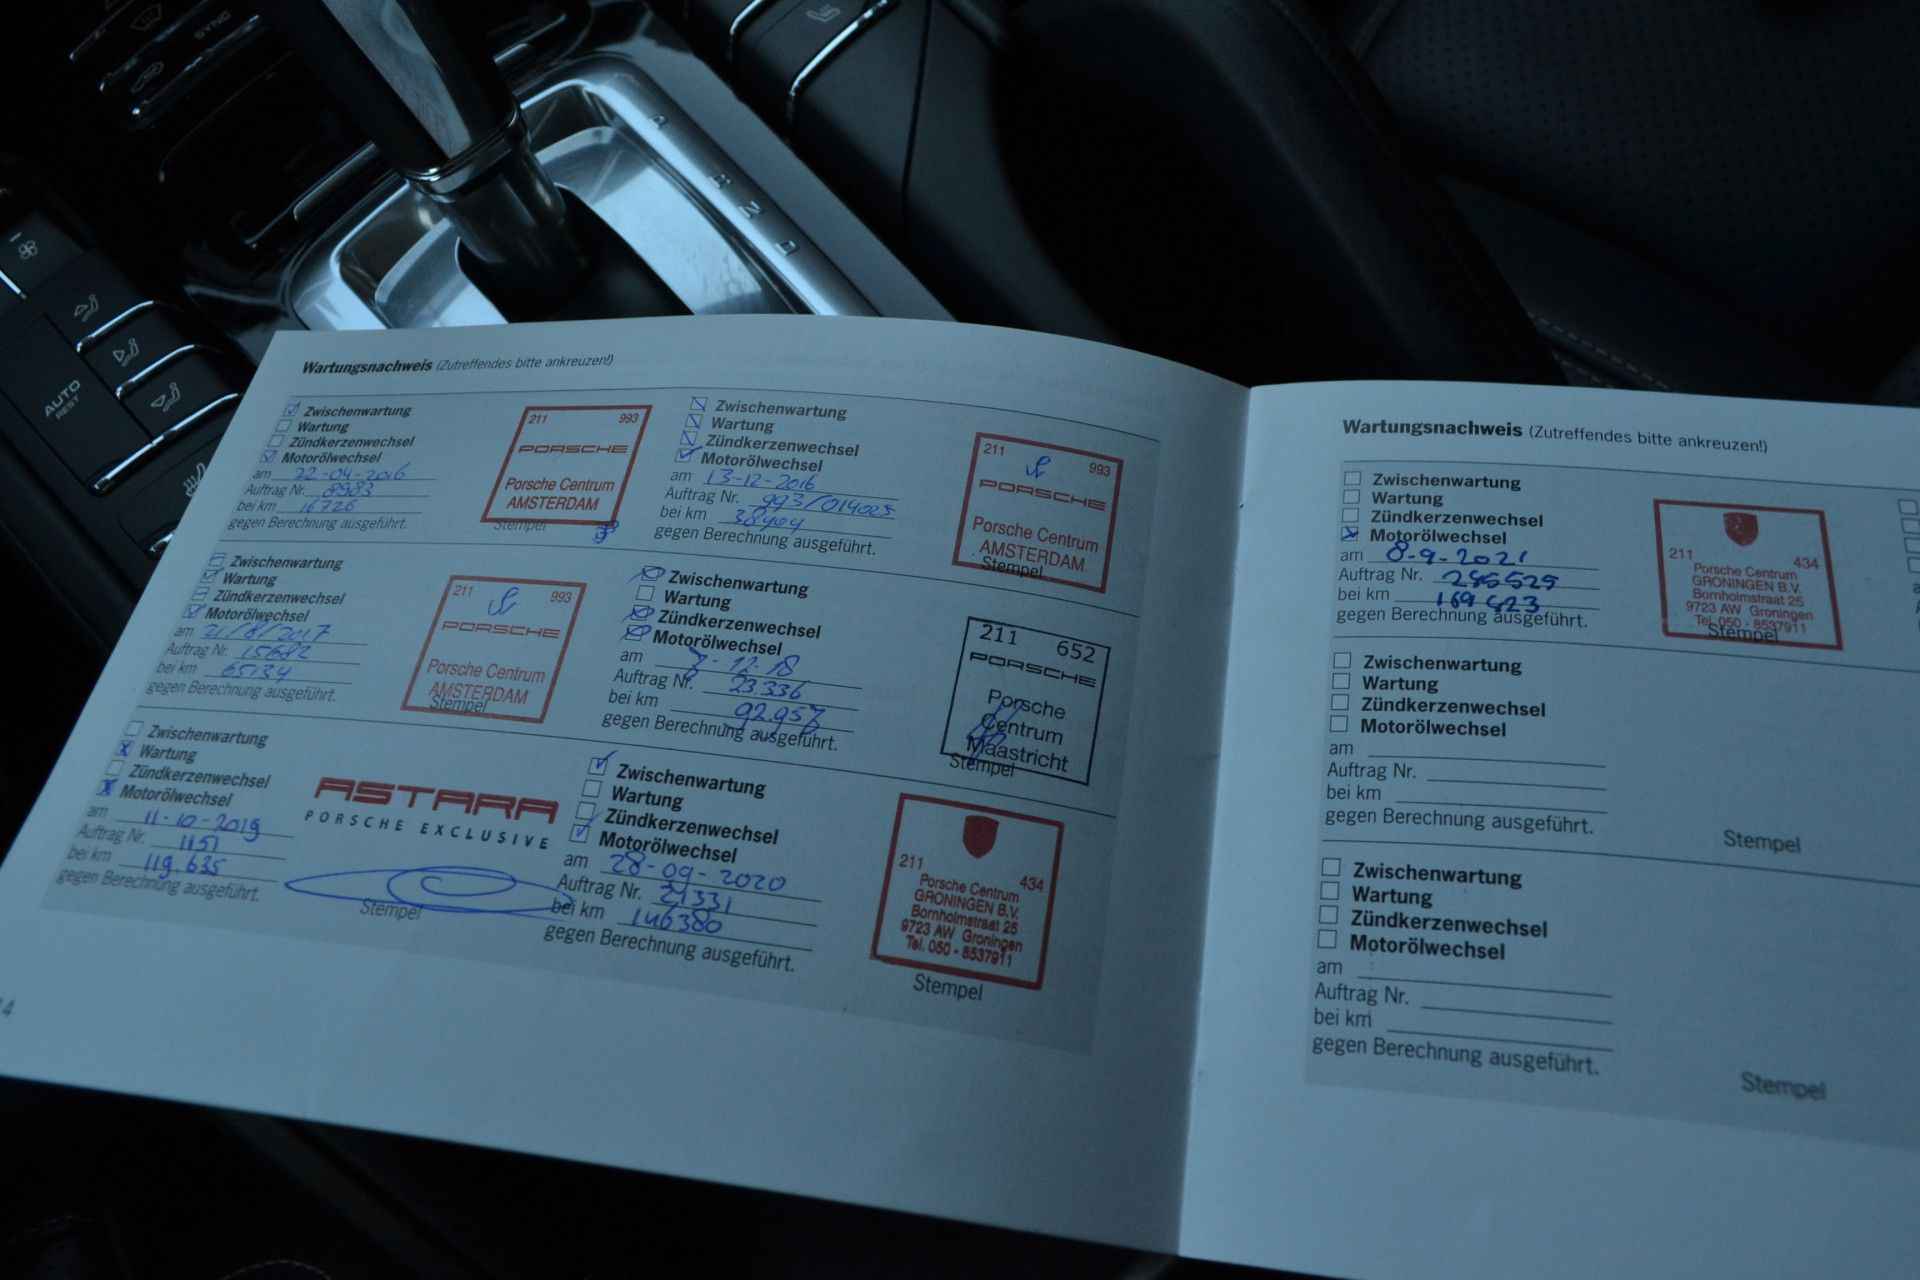 SYNC
P
R
N
D
AUTO
REST
Wartungsnachweis (Zutreffendes bitte ankreuzen!)
Zwischenwartung
Wartung
Zündkerzenwechsel
Motorölwechsel
am 22-04-2016
Auftrag Nr. 8983
bei km 16726
gegen Berechnung ausgeführt.
211 993
PORSCHE
Porsche Centrum
AMSTERDAM
Stempel
Zwischenwartung
Wartung
Zündkerzenwechsel
Motorölwechsel
am 13-12-2016
Auftrag Nr. 993/014025
bei km 38404
gegen Berechnung ausgeführt.
211 993
PORSCHE
Porsche Centrum
AMSTERDAM
Stempel
Zwischenwartung
Wartung
Zündkerzenwechsel
Motorölwechsel
am 21/8/2017
Auftrag Nr. 15682
bei km 65134
gegen Berechnung ausgeführt.
211 993
PORSCHE
Porsche Centrum
AMSTERDAM
Stempel
Zwischenwartung
Wartung
Zündkerzenwechsel
Motorölwechsel
am 7-12-18
Auftrag Nr. 23.336
bei km 92.957
gegen Berechnung ausgeführt.
211 652
PORSCHE
Porsche
Centrum
Maastricht
Stempel
Zwischenwartung
Wartung
Zündkerzenwechsel
Motorölwechsel
am 11-10-2019
Auftrag Nr. 1151
bei km 119.635
gegen Berechnung ausgeführt.
ASTARA
PORSCHE EXCLUSIVE
Stempel
Zwischenwartung
Wartung
Zündkerzenwechsel
Motorölwechsel
am 28-09-2020
Auftrag Nr. 21331
bei km 146380
gegen Berechnung ausgeführt.
211 434
Porsche Centrum
GRONINGEN B.V.
Bornholmstraat 25
9723 AW Groningen
Tel. 050 - 8537911
Stempel
Wartungsnachweis (Zutreffendes bitte ankreuzen!)
Zwischenwartung
Wartung
Zündkerzenwechsel
Motorölwechsel
am 8-9-2021
Auftrag Nr. 245529
bei km 169423
gegen Berechnung ausgeführt.
211 434
Porsche Centrum
GRONINGEN B.V.
Bornholmstraat 25
9723 AW Groningen
Tel. 050 - 8537911
Stempel
Zwischenwartung
Wartung
Zündkerzenwechsel
Motorölwechsel
am
Auftrag Nr.
bei km
gegen Berechnung ausgeführt.
Stempel
Zwischenwartung
Wartung
Zündkerzenwechsel
Motorölwechsel
am
Auftrag Nr.
bei km
gegen Berechnung ausgeführt.
Stempel